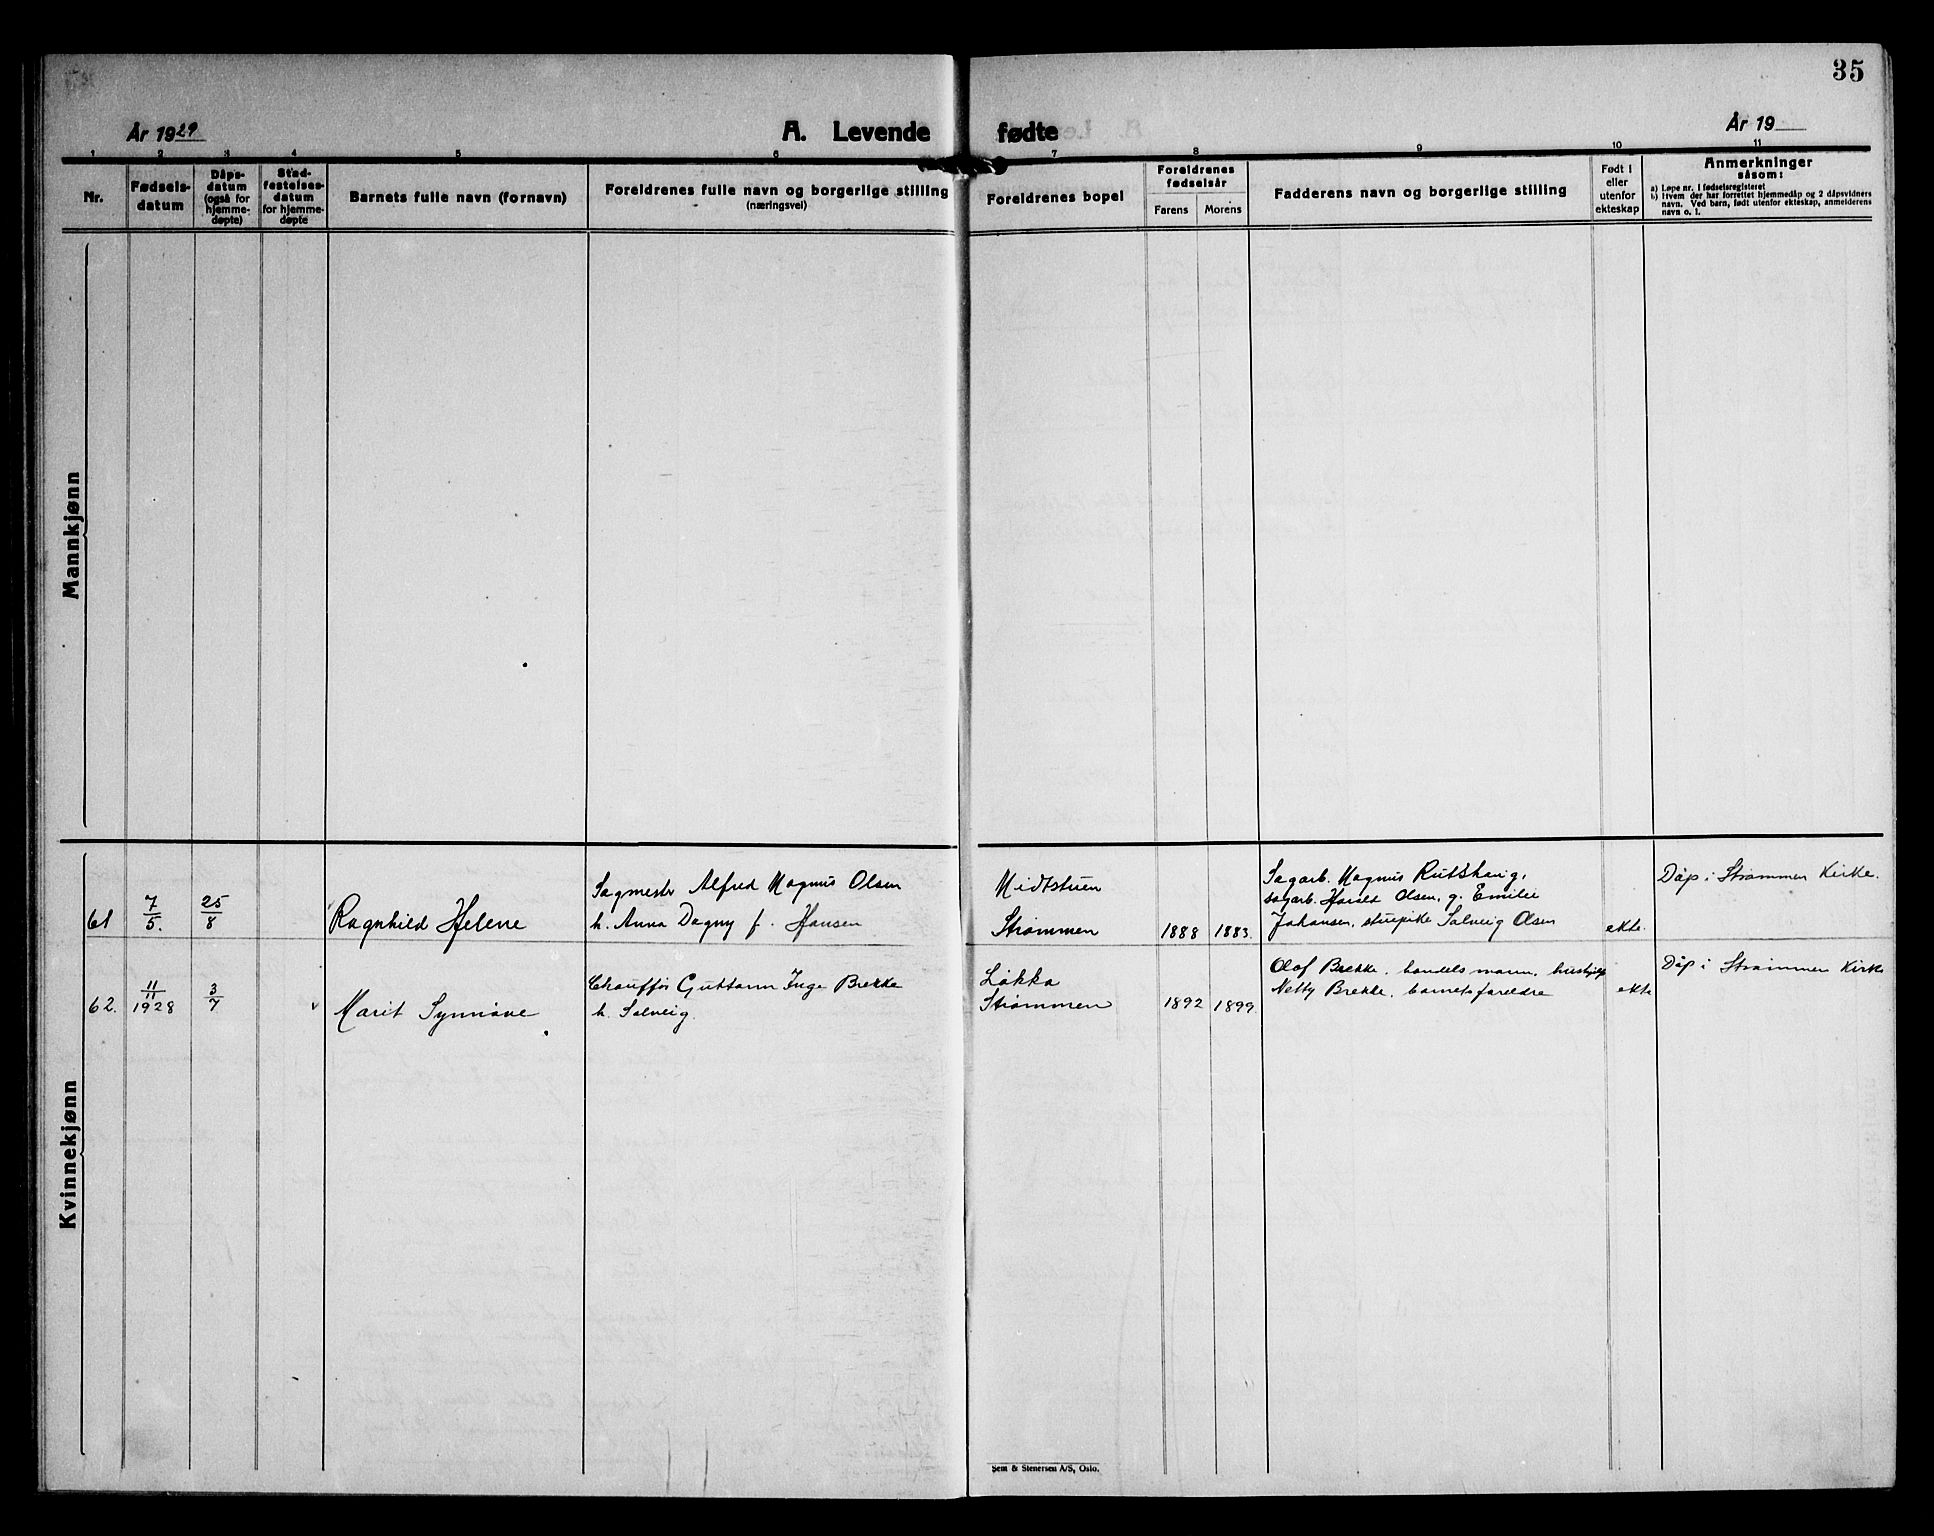 35
År 1929
A. Levende fødte
År 19
1 2 3 4 5 6 7 8 9 10 11
Nr.
Fødselsdatum
Dåpsdatum (også for hjemmedøpte)
Stadfestelsesdatum for hjemmedøpte
Barnets fulle navn (fornavn)
Foreldrenes fulle navn og borgerlige stilling
(næringsvei)
Foreldrenes bopel
Foreldrenes fødselsår
Farens Morens
Fadderens navn og borgerlige stilling
Født i eller utenfor ekteskap
Anmerkninger
såsom:
a) Løpe nr. i fødselsregisteret
b) Hvem der har forrettet hjemmedåp og 2 dåpsvidners
navn. Ved barn, født utenfor ekteskap, anmelderens
navn o. l.
Mannkjønn
Kvinnekjønn
61
7/5.
25/8
Ragnhild Helene
Sagmester Alfred Magnus Olsen
h. Anna Dagny f. Hansen
Midtstuen
Strømmen
1888 1883.
Sagarb. Magnus
sagarb. Harald Olsen, g. Emilie
Johansen, stuepike Solveig Olsen
ekte.
Dåp i Strømmen Kirke.
62.
11/11 1928
3/7
Marit Synnøve
Chauffør Guttorm Inge Brekke
h. Solveig.
Løkka
Strømmen
1892 1899.
Olaf Brekke, handelsmann, hushjelp
Netty Brekke, barnets foreldre
ekte
Dåp i Strømmen Kirke
Sem & Stenersen A/S, Oslo.